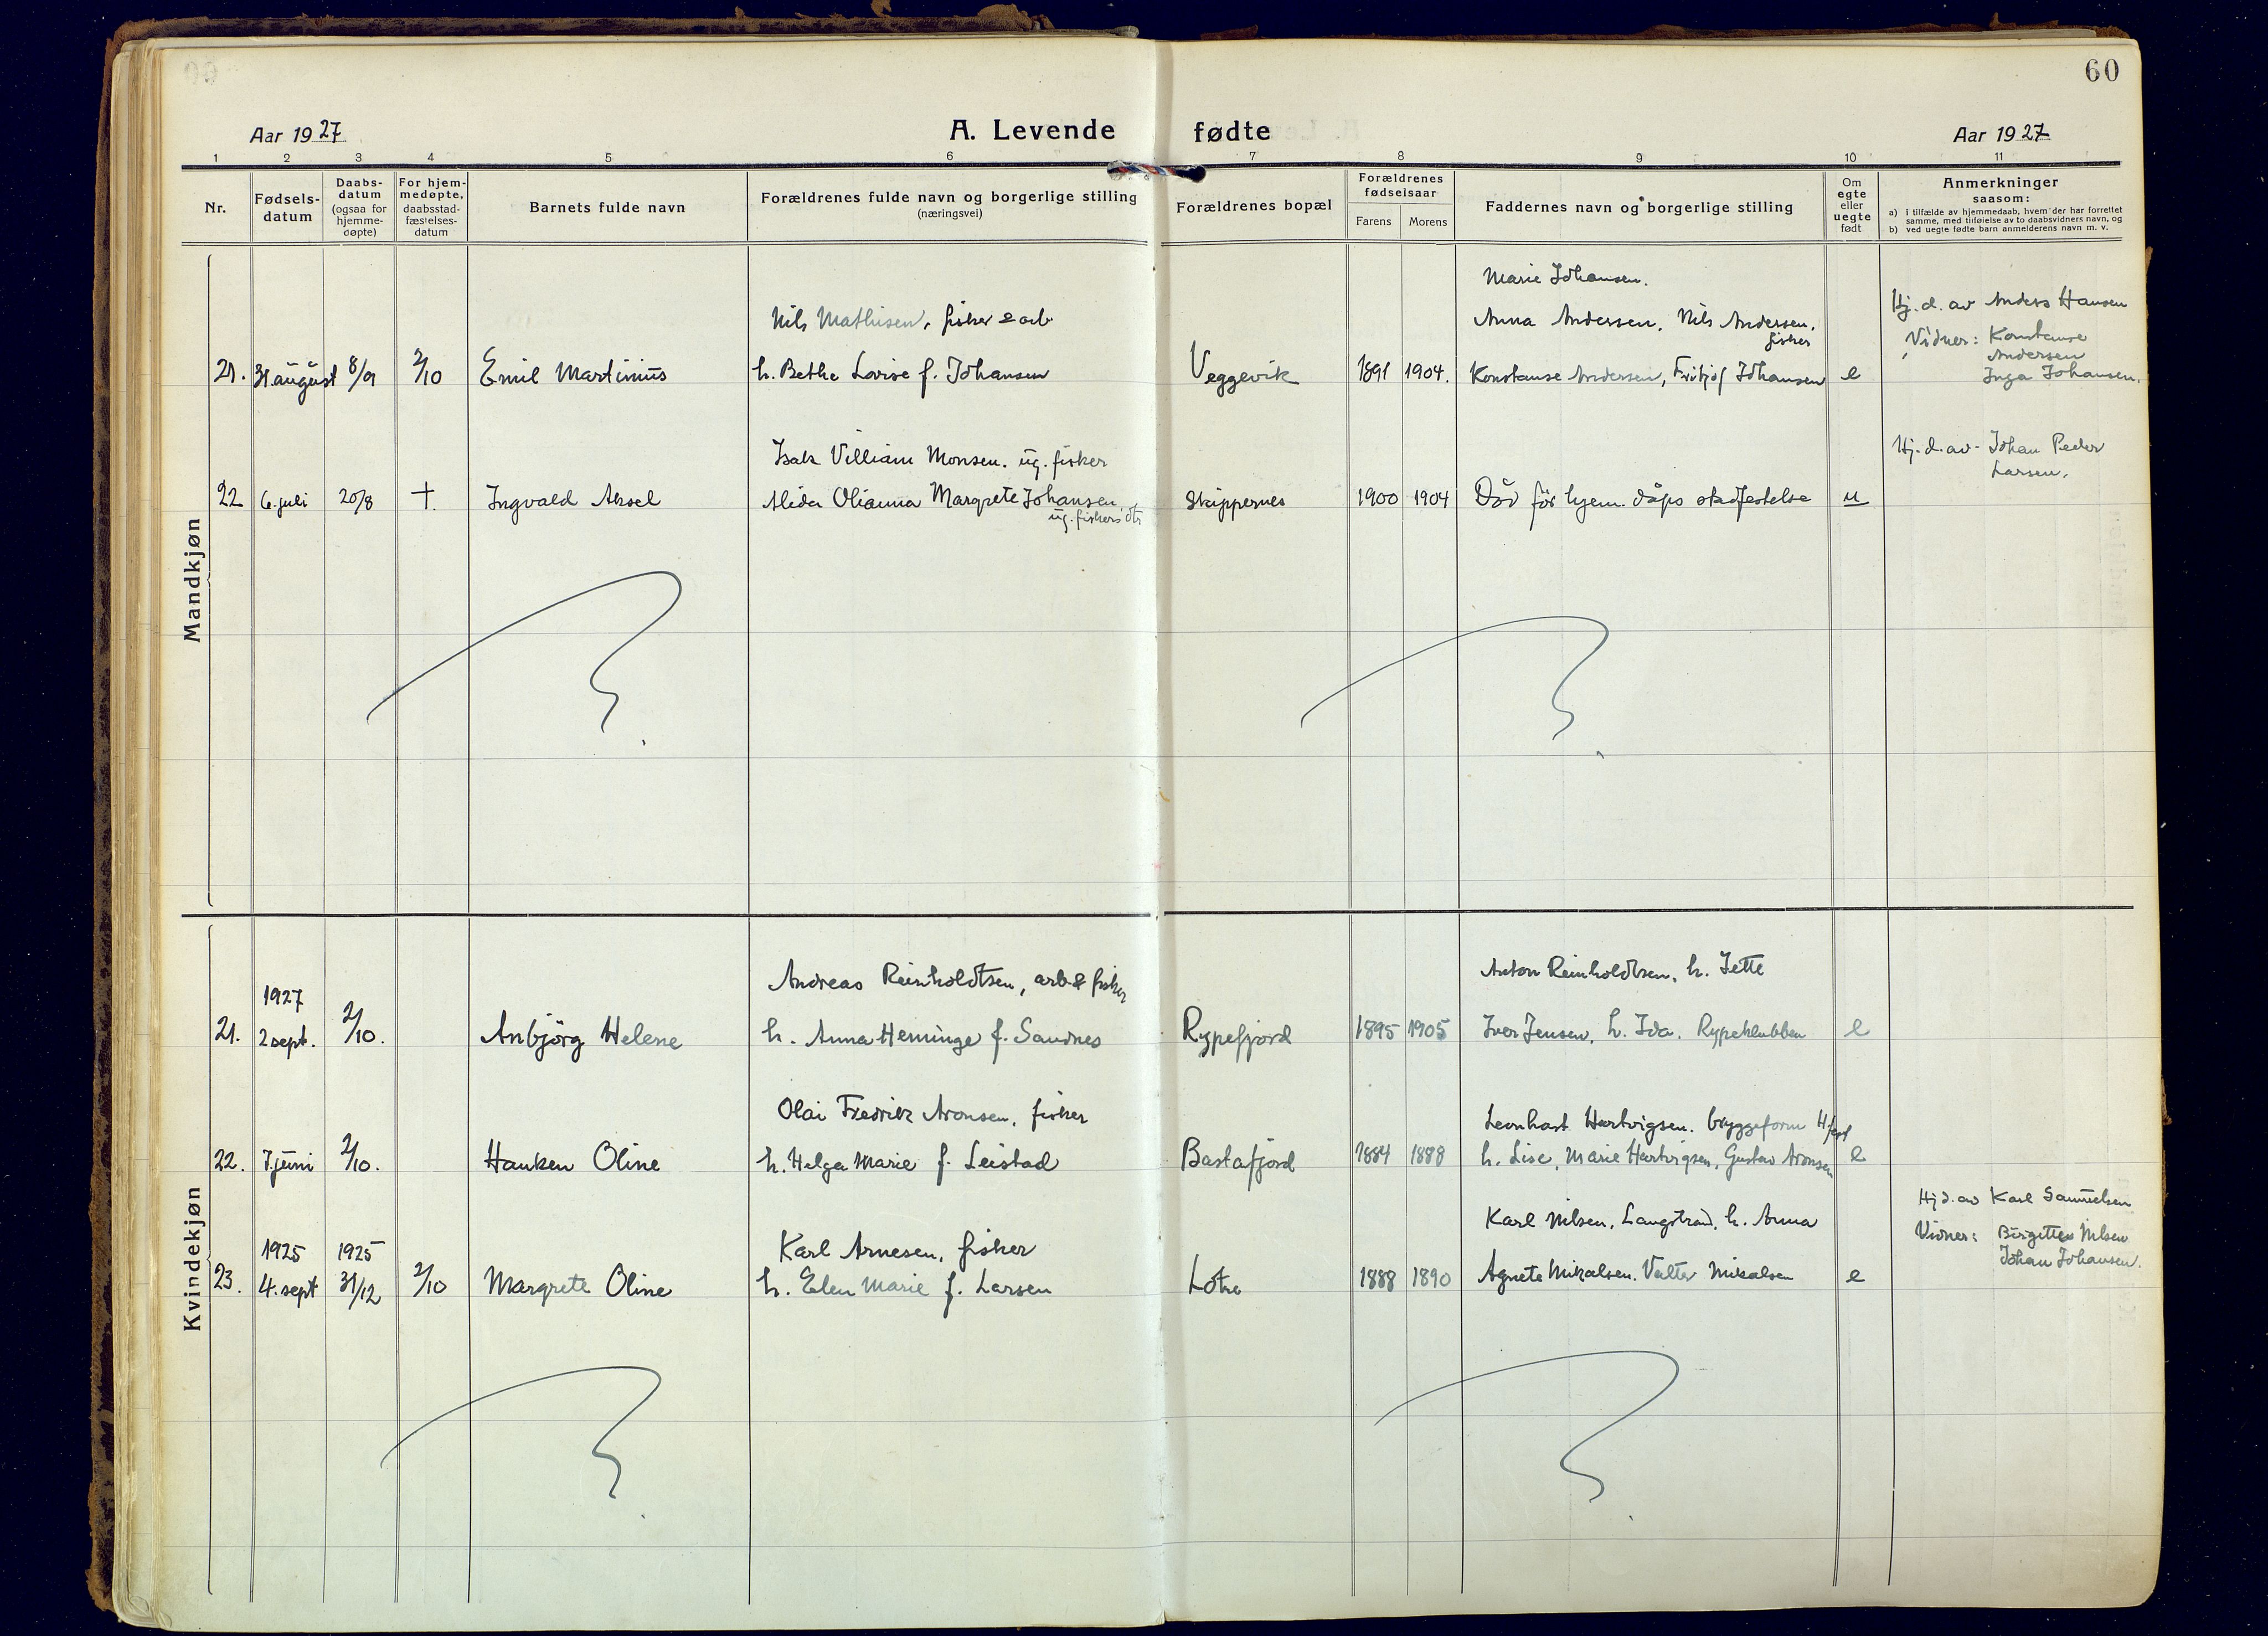 60
Aar 1927
A. Levende fødte
Aar 1927
1 2 3 4 5 6 7 8 9 10 11
Nr.
Fødsels-
datum
Daabs-
datum
(ogsaa for
hjemme-
døpte)
For hjem-
medøpte,
daabsstad-
fæstelses-
datum
Barnets fulde navn
Forældrenes fulde navn og borgerlige stilling
(næringsvei)
Forældrenes bopæl
Forældrenes
fødselsaar
Farens Morens
Faddernes navn og borgerlige stilling
Om
egte
eller
uegte
født
Anmerkninger
saasom:
a) i tilfælde av hjemmedaab, hvem der har forrettet
samme, med tilføielse av to daabsvidners navn, og
b) ved uegte fødte barn anmelderens navn m. v.
Mandkjøn
21. 31 august 8/9 2/10 Emil Martinius
Nils Mathisen, fisker & arb
h. Bethe Lovise f. Johansen
Veggevik 1891 1904.
Marie Johansen.
Anna Andersen, Nils Andersen,
fisker
Konstanse Andersen, Fritjof Johansen
e
Hj. d. av Anders Hansen
Vidner: Konstanse
Andersen
Inga Johansen.
22 6. juli 20/8 †. Ingvald Aksel
Isak Villiam Monsen. ug. fisker
Alida Olianna Margrete Johansen,
ug. fiskers dtr
Skippernes 1900 1904 Död för hjem. dåps stadfestelse u
Hj. d. av Johan Peder
Larsen.
Kvindekjøn
1927
21. 2 sept. 2/10. Anbjörg Helene
Andreas Reinholdtsen, arb & fisker
h. Anna Heminge f. Sandnes
Rypefjord 1895 1905
Anton Reinholdtsen, h. Jette
Iver Jensen, h. Ida. Rypeklubben
e
22. 7 juni 2/10. Hanken Oline
Olai Fredrik Aronsen, fisker
h. Helga Marie f. Leistad
Bastafjord 1884 1888
Leonhart Hartvigsen. bryggeform H.fest
h. Lise, Marie Hartvigsen, Gustav Aronsen
e
1925 1925
23. 4. sept 31/12 2/10 Margrete Oline
Karl Arnesen, fisker
h. Elen Marie f. Larsen
Lotre 1888 1890
Karl Nilsen, Langstrand, h. Anna
Agnete Mikalsen. Valter Mikalsen
e
Hj d. av Karl Samuelsen
Vidner: Birgitte Nilsen
Johan Johansen.